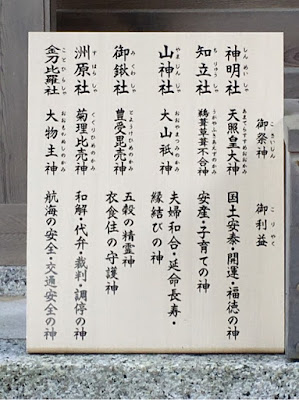 御祭神 御利益
ごさいじん ごりやく
神明社 天照皇大神 国土安泰・開運・福徳の神
しんめいしゃ あまてらすすめおおかみ
知立社 鵜葺草葺不合神 安産・子育ての神
ちりゅうしゃ うがやふきあえずのかみ
山神社 大山祇神 夫婦和合・延命長寿・
やまじんじゃ おおやまつみのかみ
縁結びの神
御鍬社 豊受毘売神 五穀の精霊神
みくわしゃ とようけひめのかみ
衣食住の守護神
洲原社 菊理比売神 和解・代弁・裁判・調停の神
すはらしゃ くくりひめのかみ
金刀比羅社 大物主神 航海の安全・交通安全の神
ことひらしゃ おおものぬしのかみ